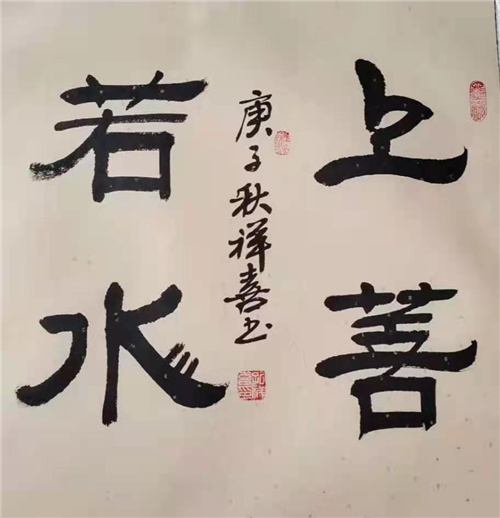 上善
若水
庚子秋祥喜书